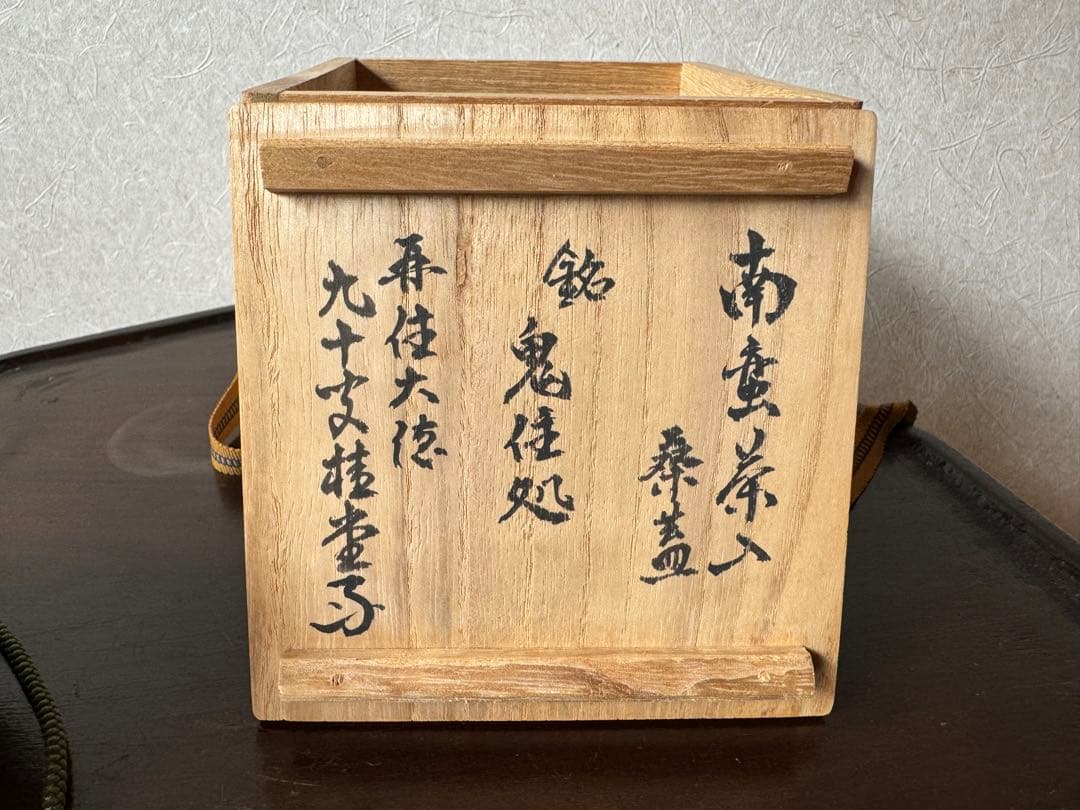 南蛮茶入
桑蓋
銘
鬼住処
再住大徳
九十叟桂堂